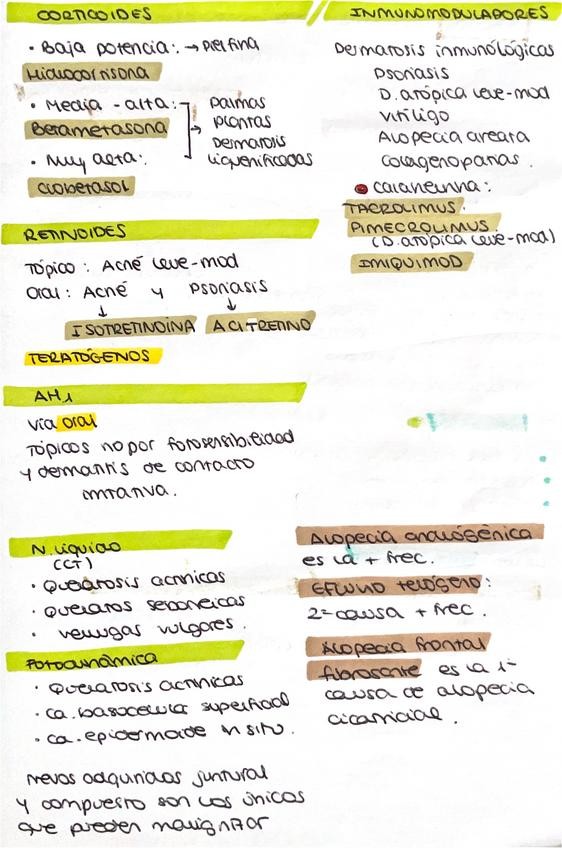 CORTICOIDES
• Baja potencia: → Piel fina
Hidrocortisona
• Media-alta:
Betametasona
• Muy alta:
Clobetasol
Palmas
Plantas
Dermatosis
liquenificadas
RETINOIDES
Tópico: Acné leve-mod
Oral: Acné y Psoriasis
↓ ↓
ISOTRETINOÍNA ACITRETINO
TERATÓGENOS
AH1
Vía oral
Tópicos no por fotosensibilidad
y dermatitis de contacto
irritativa.
N. líquido
(CT)
• Queratosis actínicas
• Queratos seborreicas
• verrugas vulgares.
Fotodinámica
• Queratosis actínicas
• ca. basocelular superficial
• ca. epidermoide in situ.
Nevos adquiridos juntural
y compuesto son los únicos
que pueden malignizar
INMUNOMODULADORES
Dermatosis inmunológicas
Psoriasis
D. atópica leve-mod
Vitíligo
Alopecia areata
Colagenopatías.
calcineurina:
TACROLIMUS.
PIMECROLIMUS.
(D. atópica leve-mod)
IMIQUIMOD
Alopecia androgénica
es la + frec.
EFLUVIO telógeno:
2ª causa + frec.
Alopecia frontal
fibrosante es la 1ª
causa de alopecia
cicatricial.